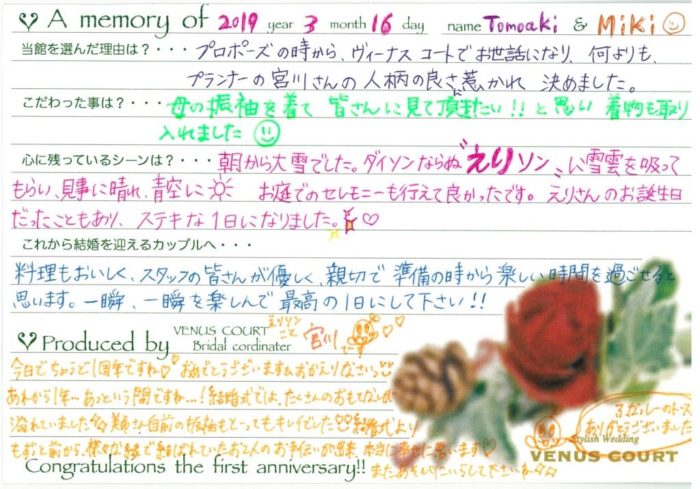 A memory of 2019 year 3 month 16 day name Tomoaki & Miki
当館を選んだ理由は？・・・プロポーズの時から、ヴィーナスコートでお世話になり、何よりも、
プランナーの宮川さんの人柄の良さに惹かれ 決めました。
こだわった事は？・・・母の振袖を着て 皆さんに見て頂きたい!! と思い 着物も取り
入れました
心に残っているシーンは？・・・朝から大雪でした。ダイソンならぬ"えりソン"に雪雲を吸って
もらい、見事に晴れ、青空に お庭でのセレモニーも行えて良かったです。えりさんのお誕生日
だったこともあり、ステキな1日になりました。
これから結婚を迎えるカップルへ・・・
料理もおいしく、スタッフの皆さんが優しく、親切で 準備の時から楽しい時間を過ごせると
思います。一瞬、一瞬を楽しんで 最高の1日にして下さい!!
Produced by VENUS COURT Bridal cordinater えりソンこと 宮川
今日でちょうど1周年ですね♡ おめでとうございます&おかえりなさい
あれから1年…あっという間ですね…!結婚式では、たくさんのおもてなしが
溢れていました 美希さん自前の振袖もとってもキレイでした 結婚式より
もずっと前から、様々な縁で結ばれていたお2人のお手伝いが出来、本当に幸せに思います♡
またあそびにいらして下さいね
ありがとうございました
Stylish Wedding
VENUS COURT
Congratulations the first anniversary!!